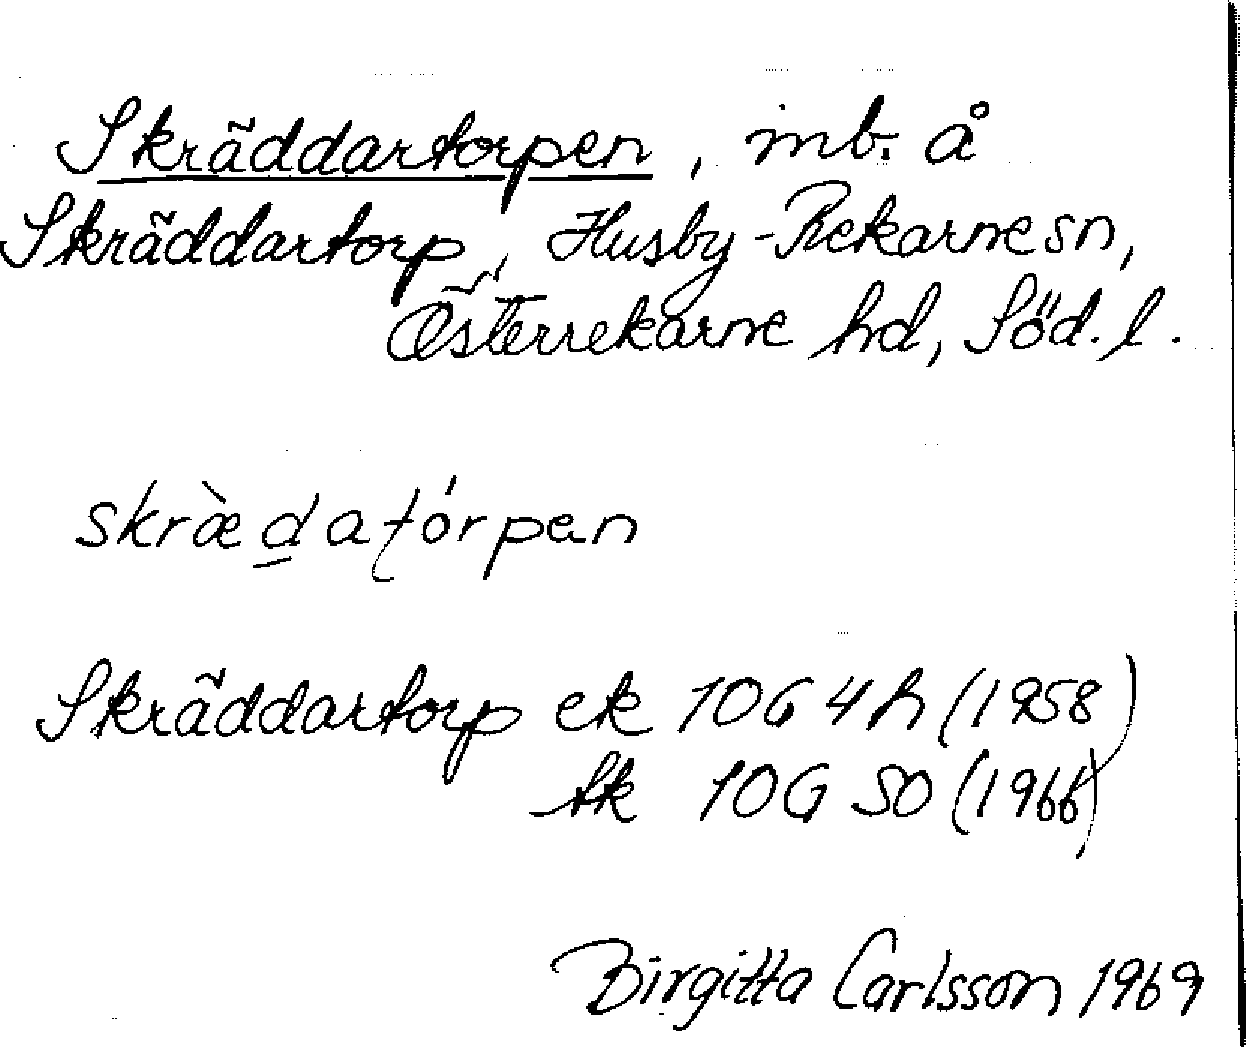 Skräddartorpen, inb. å
Skräddartorp, Husby-Rekarne sn,
Österrekarne hd, Söd. l.
skræ̀da̱ʈórpen
Skräddartorp ek 10G 4h (1958)
tk 10G SO (1966)
Birgitta Carlsson 1969